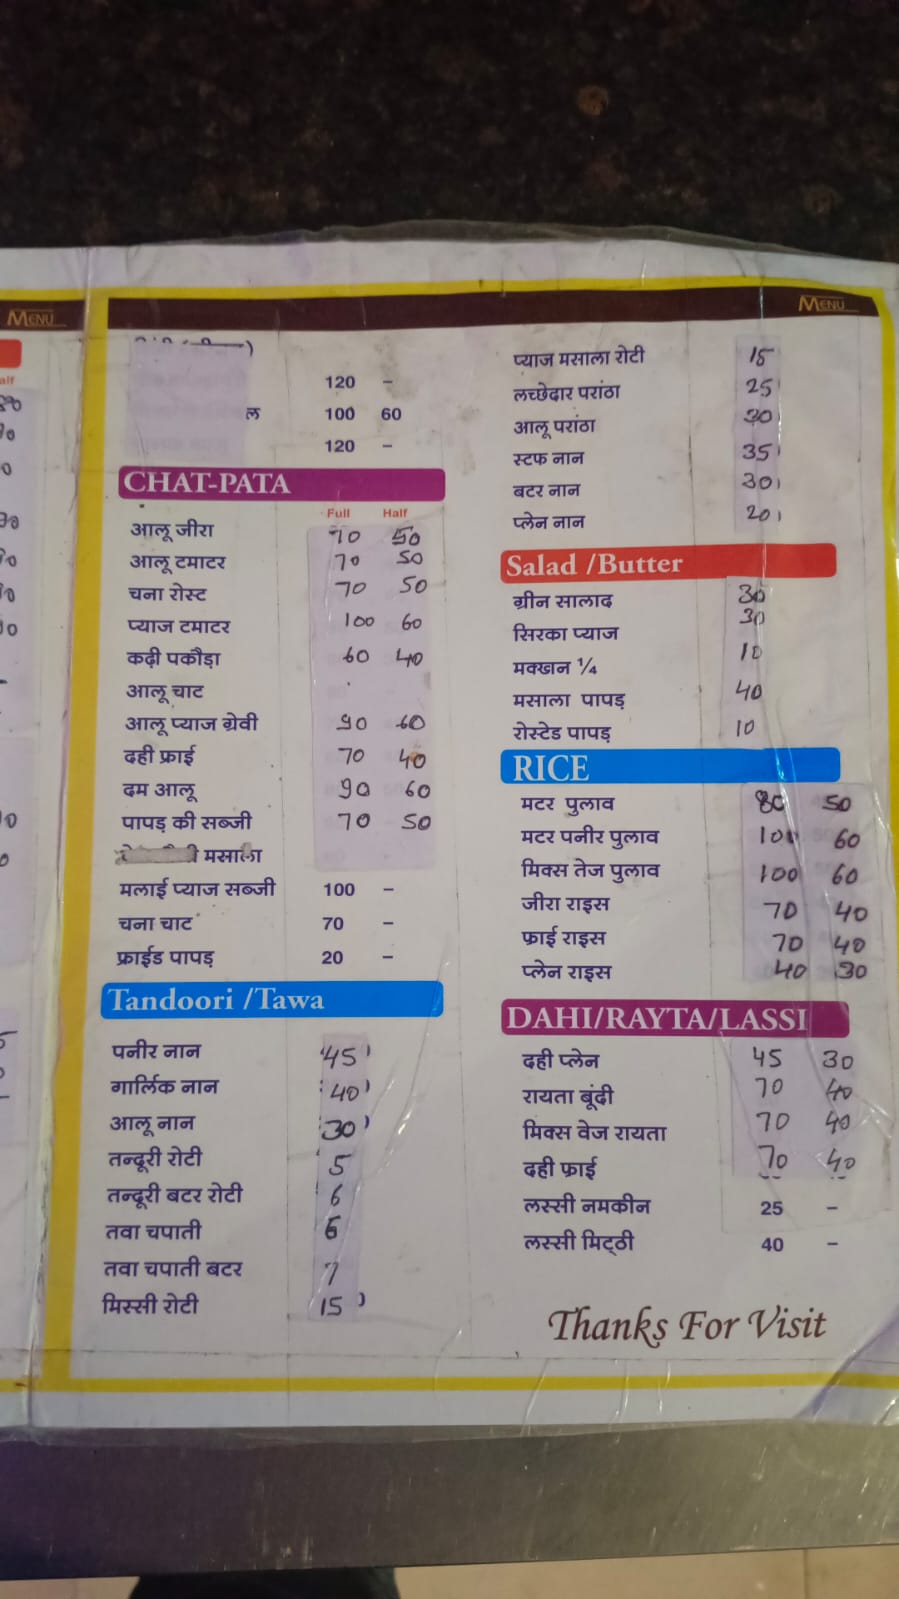 MENU
MENU
alf
120 –
ल 100 60
120 –
CHAT-PATA
Full Half
आलू जीरा 70 50
आलू टमाटर 70 50
चना रोस्ट 70 50
प्याज टमाटर 100 60
कढ़ी पकौड़ा 60 40
आलू चाट
आलू प्याज ग्रेवी 90 60
दही फ्राई 70 40
दम आलू 90 60
पापड़ की सब्जी 70 50
मसाला
मलाई प्याज सब्जी 100 –
चना चाट 70 –
फ्राईड पापड़ 20 –
Tandoori /Tawa
पनीर नान 45
गार्लिक नान 40
आलू नान 30
तन्दूरी रोटी 5
तन्दूरी बटर रोटी 6
तवा चपाती 6
तवा चपाती बटर 7
मिस्सी रोटी 15
प्याज मसाला रोटी 15
लच्छेदार परांठा 25
आलू परांठा 30
स्टफ नान 35
बटर नान 30
प्लेन नान 20
Salad /Butter
ग्रीन सालाद 30
सिरका प्याज 30
मक्खान ¼ 10
मसाला पापड़ 40
रोस्टेड पापड़ 10
RICE
मटर पुलाव 80 50
मटर पनीर पुलाव 100 60
मिक्स तेज पुलाव 100 60
जीरा राइस 70 40
फ्राई राइस 70 40
प्लेन राइस 40 30
DAHI/RAYTA/LASSI
दही प्लेन 45 30
रायता बूंदी 70 40
मिक्स वेज रायता 70 40
दही फ्राई 70 40
लस्सी नमकीन 25 –
लस्सी मिट्ठी 40 –
Thanks For Visit